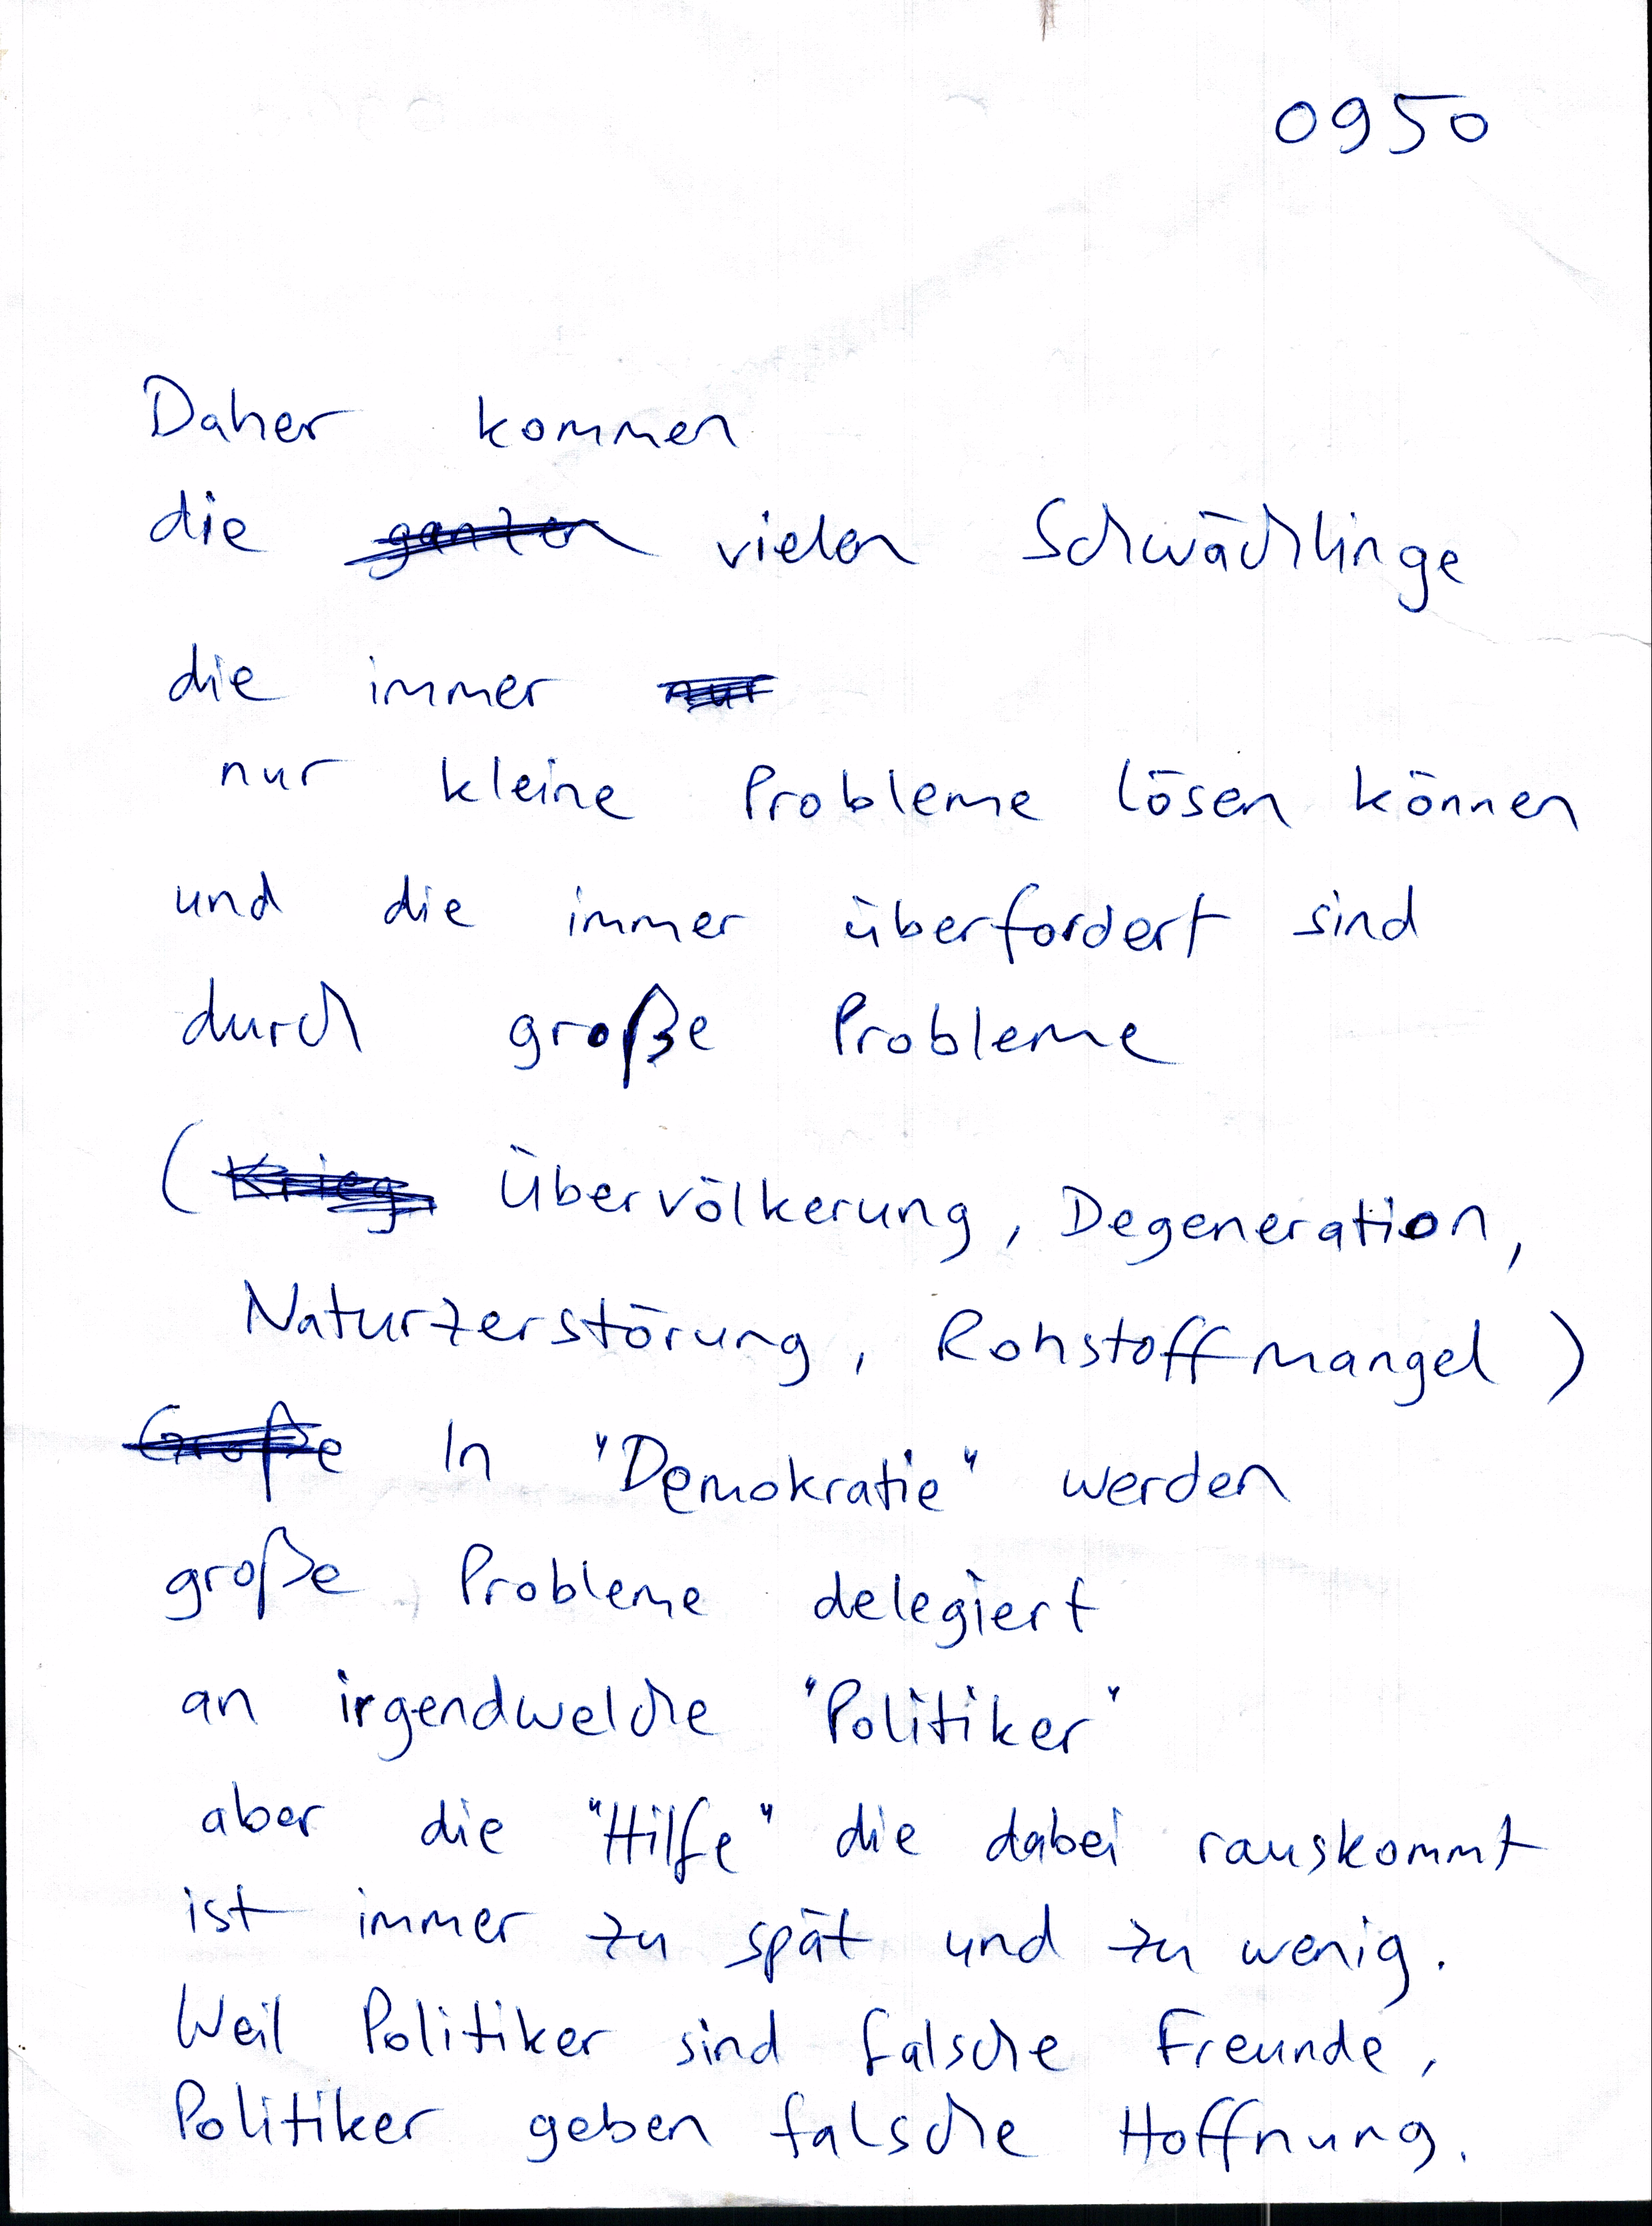 0950
Daher kommen
die ganzen vielen Schwächlinge
die immer nur
nur kleine Probleme lösen können
und die immer überfordert sind
durch große Probleme
(Krieg Übervölkerung, Degeneration,
Naturzerstörung, Rohstoffmangel)
Große In "Demokratie" werden
große Probleme delegiert
an irgendwelche "Politiker"
aber die "Hilfe" die dabei rauskommt
ist immer zu spät und zu wenig.
Weil Politiker sind falsche Freunde,
Politiker geben falsche Hoffnung.